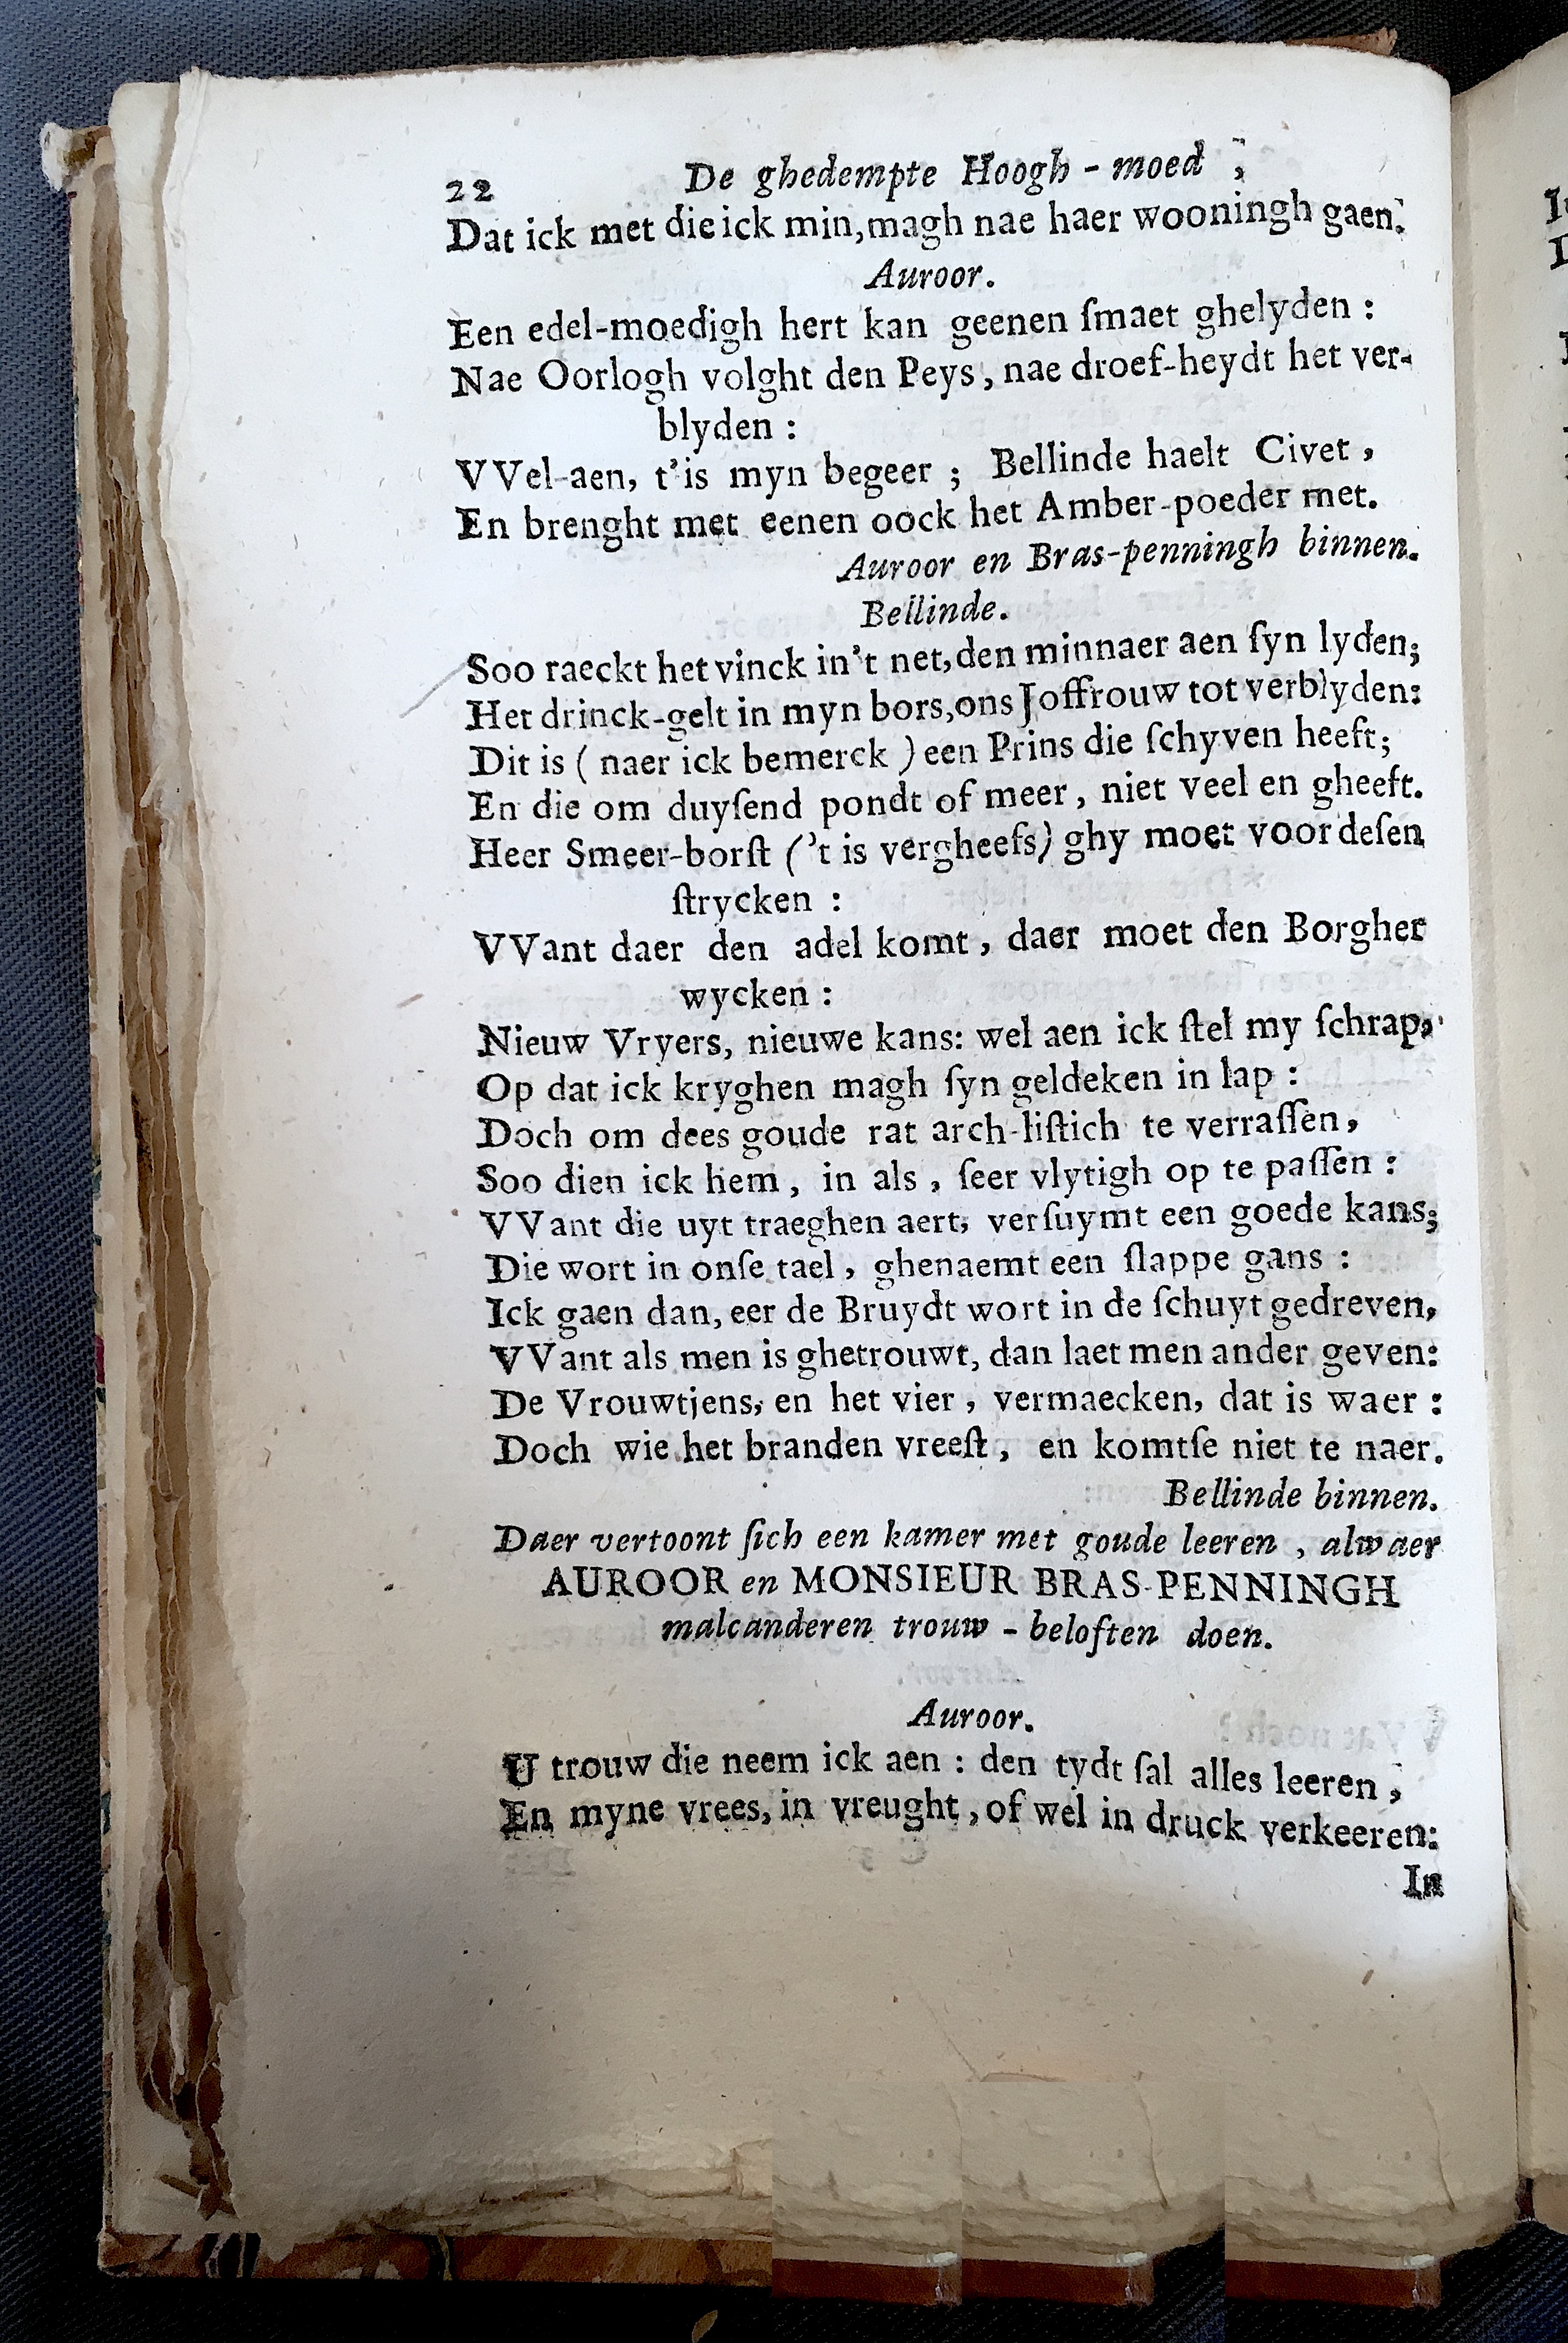 22 De ghedempte Hoogh-moed,
Dat ick met die ick min, magh nae haer wooningh gaen.
Auroor.
Een edel-moedigh hert kan geenen ſmaet ghelyden :
Nae Oorlogh volght den Peys, nae droef-heydt het ver-
blyden :
VVel-aen, t'is myn begeer ; Bellinde haelt Civet,
En brenght met eenen oock het Amber-poeder met.
Auroor en Bras-penningh binnen.
Bellinde.
Soo raeckt het vinck in't net, den minnaer aen ſyn lyden;
Het drinck-gelt in myn bors, ons Joffrouw tot verblyden:
Dit is ( naer ick bemerck ) een Prins die ſchyven heeft;
En die om duyſend pondt of meer, niet veel en gheeft.
Heer Smeer-borſt ('t is vergheefs) ghy moet voor deſen
ſtrycken :
VVant daer den adel komt, daer moet den Borgher
wycken :
Nieuw Vryers, nieuwe kans: wel aen ick ſtel my ſchrap,
Op dat ick kryghen magh ſyn geldeken in lap :
Doch om dees goude rat arch-liſtich te verraſſen,
Soo dien ick hem, in als, ſeer vlytigh op te paſſen :
VVant die uyt traeghen aert, verſuymt een goede kans;
Die wort in onſe tael, ghenaemt een ſlappe gans :
Ick gaen dan, eer de Bruydt wort in de ſchuyt gedreven,
VVant als men is ghetrouwt, dan laet men ander geven:
De Vrouwtjens, en het vier, vermaecken, dat is waer :
Doch wie het branden vreeſt, en komtſe niet te naer.
Bellinde binnen.
Daer vertoont ſich een kamer met goude leeren, alwaer
AUROOR en MONSIEUR BRAS-PENNINGH
malcanderen trouw-beloften doen.
Auroor.
U trouw die neem ick aen : den tydt ſal alles leeren,
En myne vrees, in vreught, of wel in druck verkeeren:
In